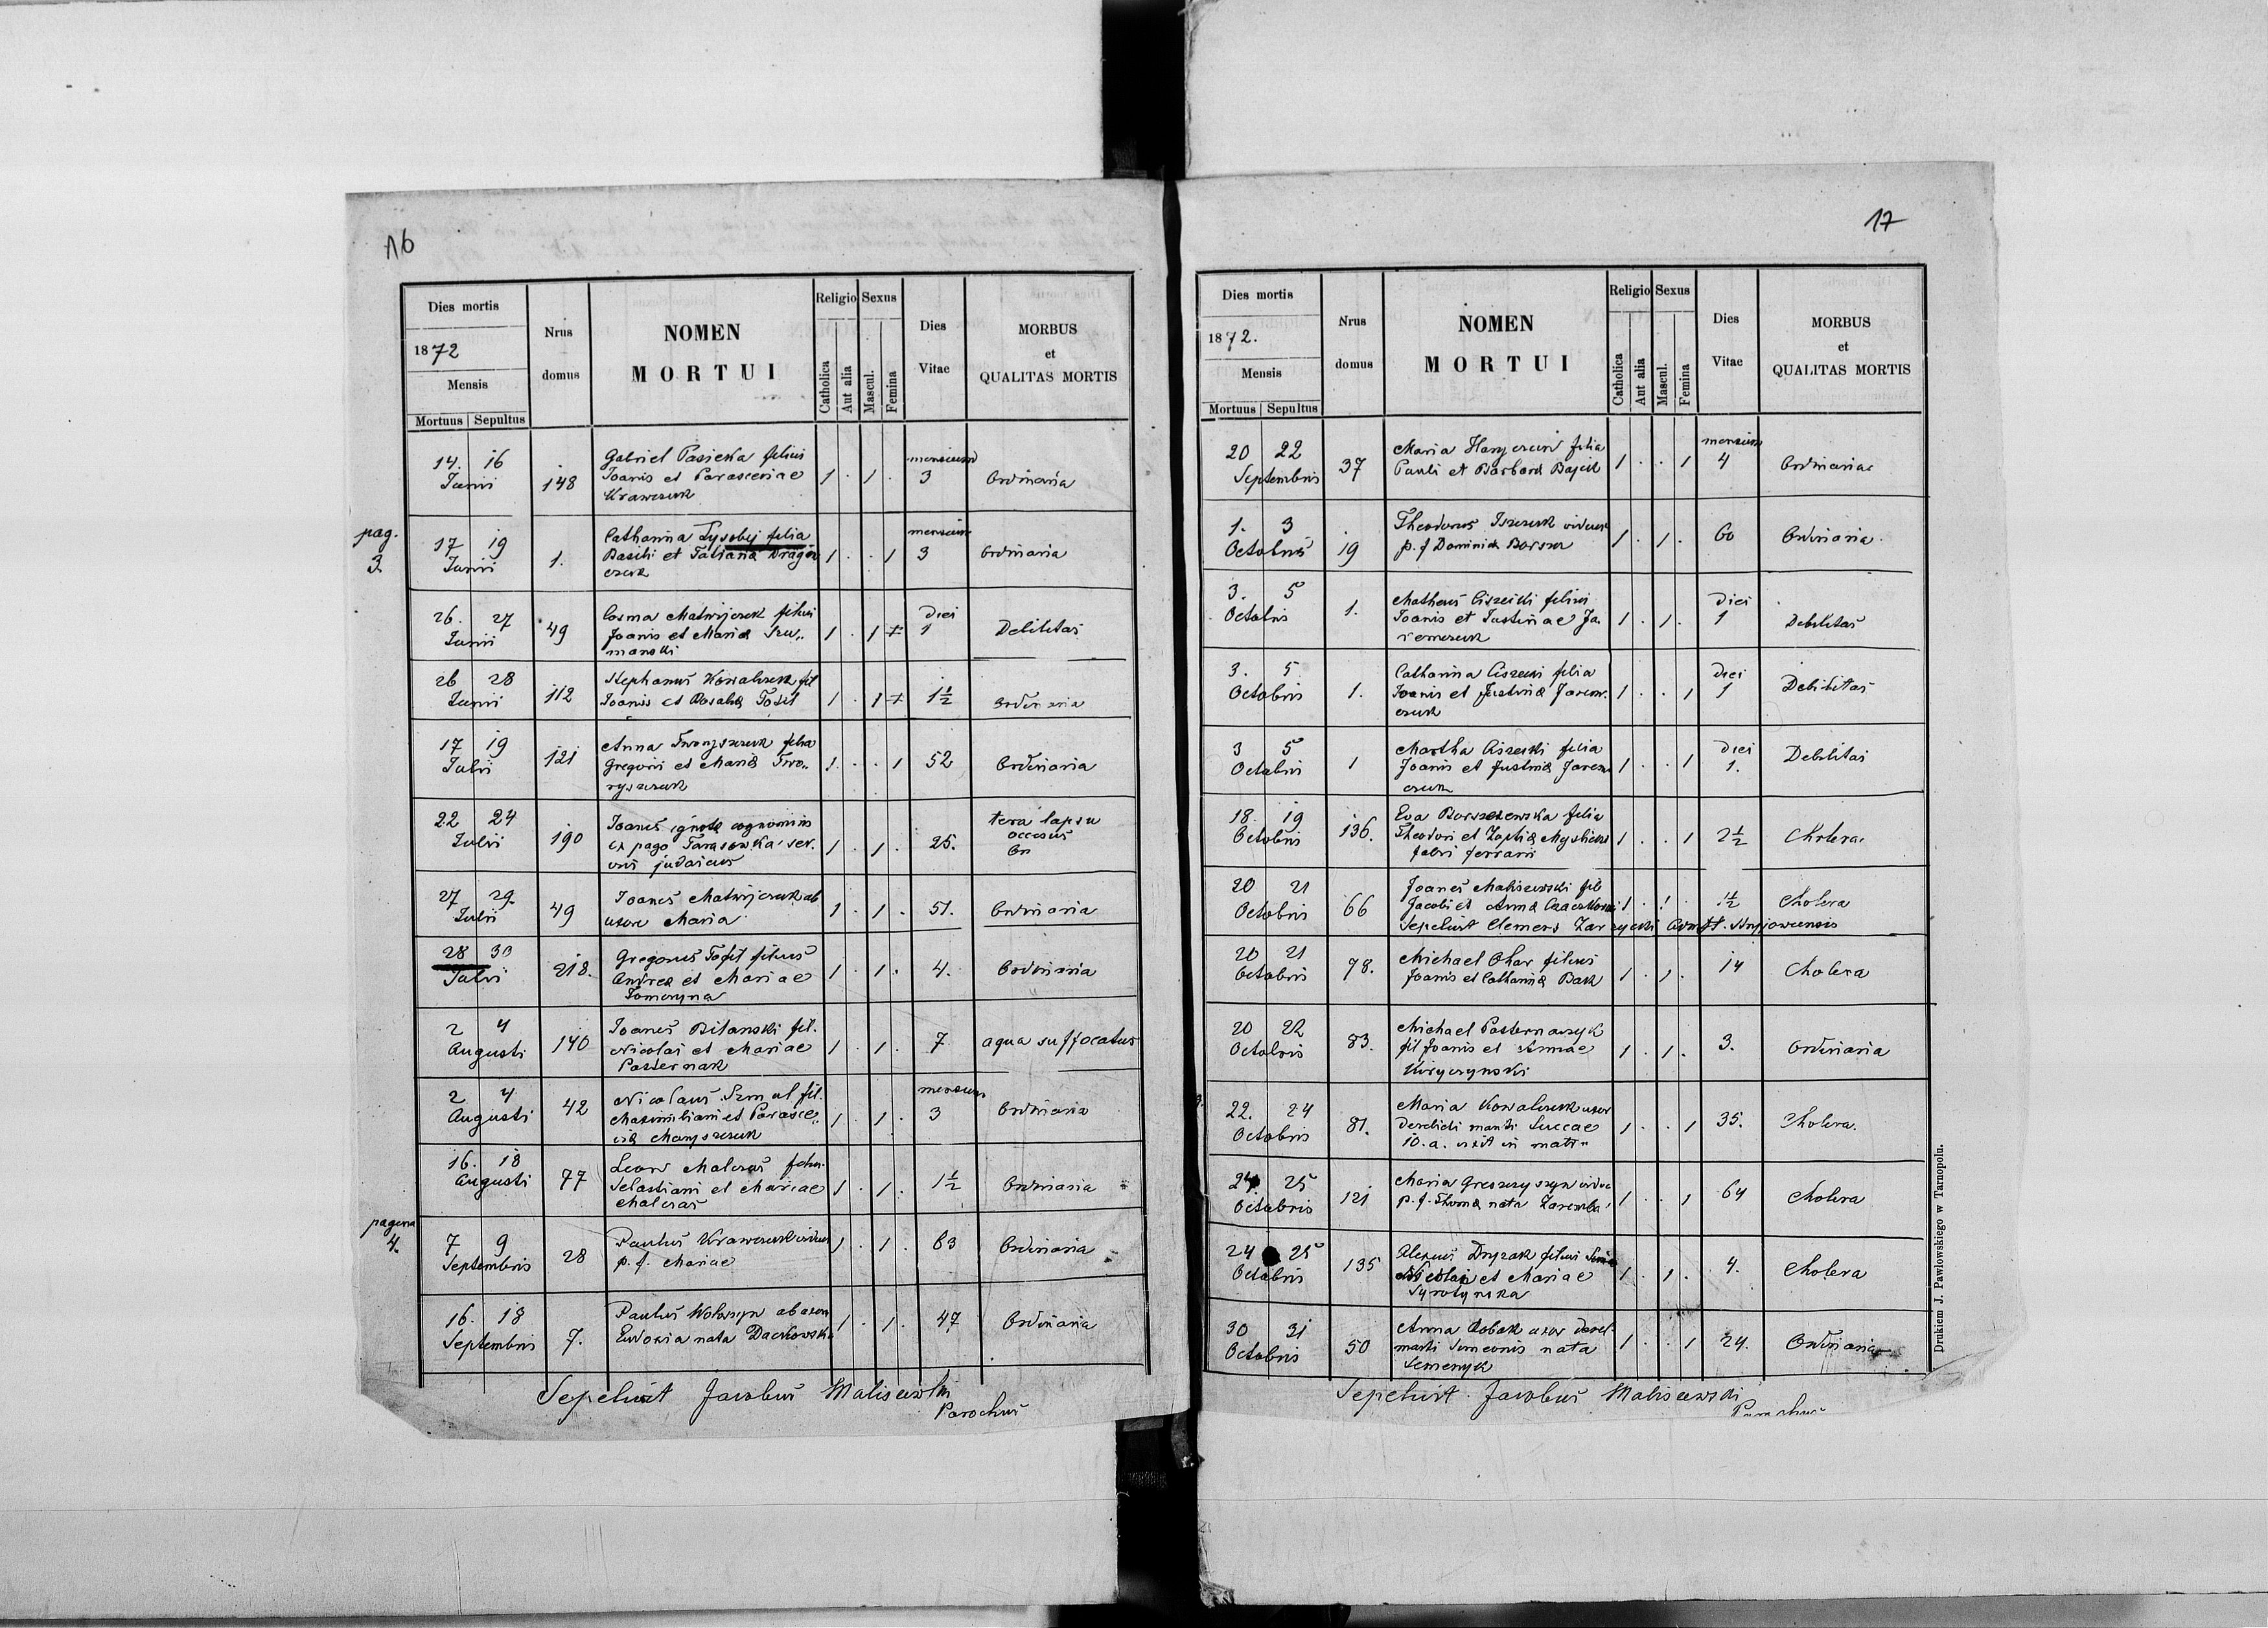 16
Dies mortis
1872
Mensis
Mortuus Sepultus
Nrus
domus
NOMEN
MORTUI
Religio Sexus
Catholica
Aut alia
Mascul.
Femina
Dies
Vitae
MORBUS
et
QUALITAS MORTIS
14. 16
Junii
148
Gabriel Pasieka filius
Joanis et Parasceviae
Krawczuk
1 . 1 .
mensium
3
Ordinaria
pag.
3
17 19
Junii
1.
Catharina Lysobij filia
Basilii et Tatiana
czuk
1 . . 1
mensium
3
Ordinaria
26. 27
Junii
49
Cosma Matwijczuk filius
Joanis et Maria Szu„
manski
1 . 1
Diei
1
Debilitas
26 28
Junii
112
Stephanus Kowalczuk fil
Joanis et Rosalia Tofil
1 . 1
1½
Ordinaria
17 19
Julii
121
Anna filia
Gregorii et Maria Two„
ryszczuk
1 . . 1
52
Ordinaria
22 24
Julii
190
Joanes ignota cognominis
ex pago Tarasowka ser.
vus judaicus
1 . 1 .
25.
tera lapsu
occisus
27 29.
Julii
49
Joanes Matwijczuk ab
uxore Maria
1 . 1 .
51.
Ordinaria
28 30
Julii
218.
Gregorius Tofil filius
Andrea et Mariae
1 . 1 .
4.
Ordinaria
2 4
Augusti
140
Joanes Bilanski fil.
Nicolai et Mariae
Pasternak
1 . 1 .
7
aqua suffocatus
2 4
Augusti
42
Nicolaus fil.
Maximiliani et Parasce„
via
1 . 1 .
mensium
3
Ordinaria
16. 18
Augusti
77
Leon Malczas filiu.
Sebastiani et Mariae
Malczas
1 . 1 .
1½
Ordinaria
pagina
4.
7 9
Septembris
28
Paulus Krawczuk viduus
p. f. Mariae
1 . 1 .
63
Ordinaria
16. 18
Septembris
7.
Paulus Woloszyn ab uxore
Eudoxia nata Daczkowska
1 . 1 .
47
Ordinaria
Sepelivit Jacobus Maliszewski
Parochus
17
Dies mortis
1872.
Mensis
Mortuus Sepultus
Nrus
domus
NOMEN
MORTUI
Religio Sexus
Catholica
Aut alia
Mascul.
Femina
Dies
Vitae
MORBUS
et
QUALITAS MORTIS
20 22
Septembris
37
Maria filia
Pauli et Barbara
1 . . 1
mensium
4
Ordinariae
1. 3
Octobris
19
Theodorus viduus
p. f Dominica
1 . 1 .
60
Ordinaria
3. 5
Octobris
1.
Matheus filius
Joanis et Justinae Ja„
remczuk
1 . 1 .
Diei
1
Debilitas
3. 5
Octobris
1.
Catharina filia
Joanis et Justina Jarem„
czuk
1 . . 1
Diei
1
Debilitas
3 5
Octobris
1
Martha filia
Joanis et Justina Jarem
czuk
1 . . 1
Diei
1.
Debilitas
18. 19
Octobris
136.
Eva Borszczewska filia
Theodori et Zophia
fabri ferrarii
1 . . 1
2½
Cholera.
20 21
Octobris
66
Joanes Maliszewski fil
Jacobi et Anna
1 . 1 .
1½
Cholera
Sepelivit Clemens Zarzycki
20 21
Octobris
78.
Michael Ohar filius
Joanis et Catharina Bak
1 . 1 .
14
Cholera
20 22
Octobris
83.
Michael Pasternaczyk
fil Joanis et Annae
1 . 1 .
3.
Ordinaria
22. 24
Octobris
81.
Maria Kowalczuk uxor
derelicti mariti Luccae
10. a. vixit in matr„
1 . . 1
35.
Cholera.
24. 25
Octobris
121
Maria vidua
p. f. Thoma nata Zaremba
1 . . 1
64
Cholera
24 25
Octobris
135
Alexius filius
Nicolai et Mariae
1 . 1 .
4.
Cholera
30 31
Octobris
50
Anna Robak uxor derel.
mariti Simeonis nata
Semenyk
1 . . 1
24.
Ordinaria
Sepelivit . Jacobus Maliszewski
Parochus
Drukiem J. Pawlowskiego w Tarnopolu.